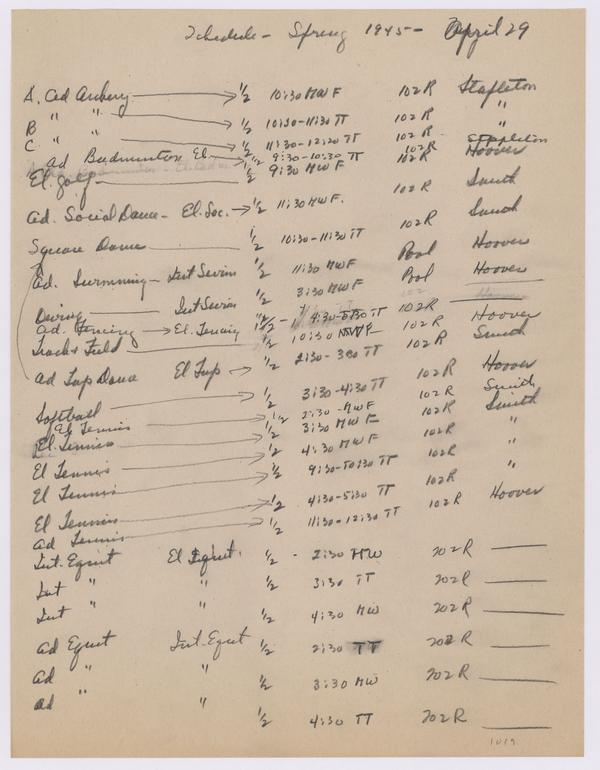 Schedule - Spring 1945 - April 29
A. Ad Archery 1/2 10:30 MWF 102R Stapleton
B " " 1/2 10:30-11:30 TT 102R "
C " " 1/2 11:30-12:20 TT 102R Stapleton
Ad Badminton El. 1/2 9:30-10:30 TT 102R Hoover
El. Golf 1/2 9:30 MWF 102R
Ad. Social Dance - El. Soc. 1/2 11:30 MWF. 102R Smith
Square Dance 1/2 10:30-11:30 TT 102R Smith
Ad. Swimming - Int Swim 1/2 11:30 MWF Pool Hoover
Diving Int Swim 1/2 3:30 MWF Pool Hoover
Ad. Fencing El. Fencing 1/2 - 4:30-5:30 TT 102R
Track & Field 1/2 10:30 MWF 102R Hoover
Ad Tap Dance El Tap 1/2 2:30-3:30 TT 102R Smith
Softball 1/2 3:30-4:30 TT 102R Hoover
El Tennis 1/2 2:30 - MWF 102R Smith
El. Tennis 1/2 3:30 MWF 102R Smith
El Tennis 1/2 4:30 MWF 102R "
El Tennis 1/2 9:30-10:30 TT 102R "
El Tennis 1/2 4:30-5:30 TT 102R
Ad Tennis 1/2 11:30-12:30 TT 102R Hoover
Int. Equit El Equit. 1/2 - 2:30 MW 202R
Int " " 1/2 3:30 TT 202R
Int " " 1/2 4:30 MW 202R
Ad Equit Int-Equit 1/2 2:30 TT 202R
Ad " " 1/2 3:30 MW 202R
Ad " " 1/2 4:30 TT 202R